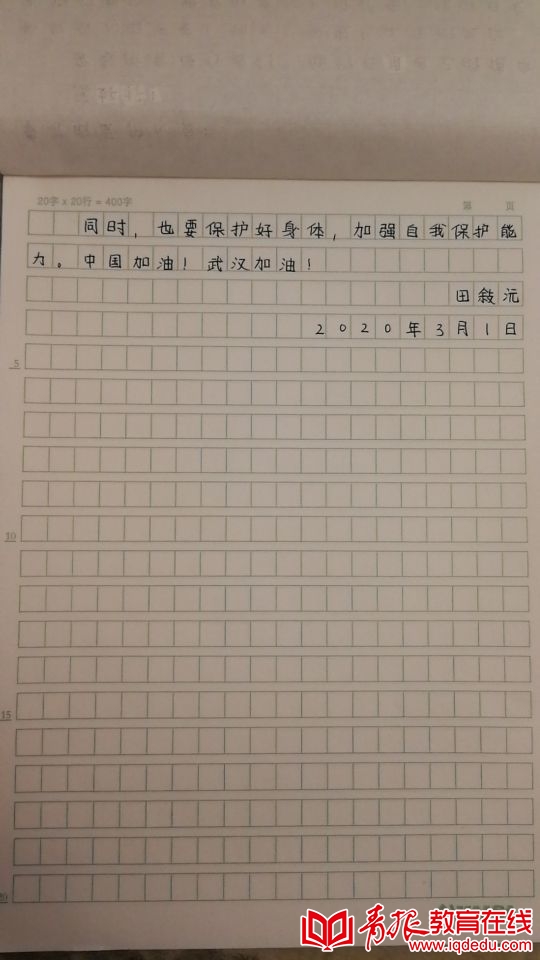 20字 x 20行 = 400字
第 页
同时，也要保护好身体，加强自我保护能
力。中国加油！武汉加油！
田敍沅
2020年3月1日
5
10
15
20
青报教育在线
www.iqdedu.com